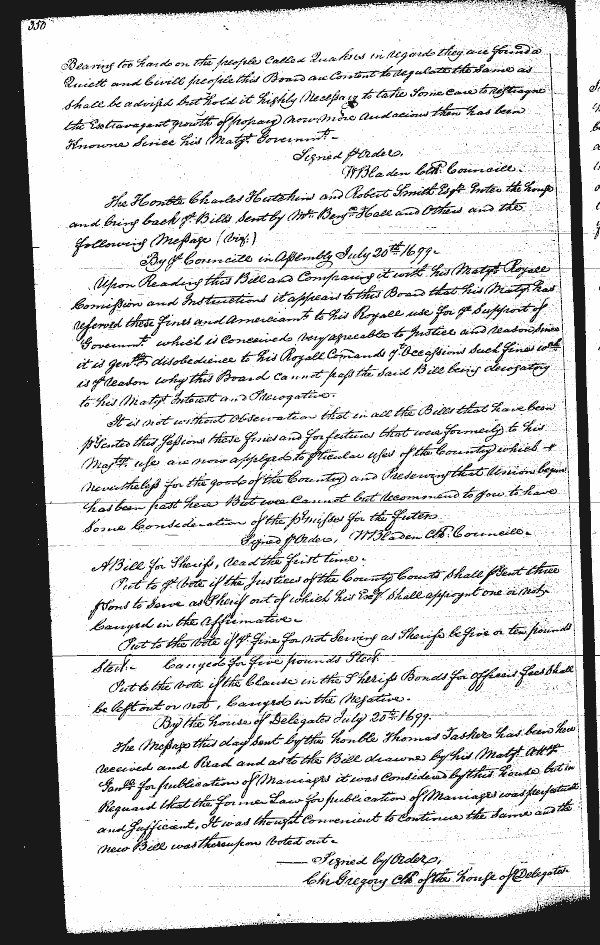 350
Bearing too hard on the people called Quakers in regard they are found a
Quiett and Civill people this Board are Content to regulate the Same as
shall be advised but hold it highly Necessary to take Some care to restrayne
the Extravagant growth of popery now more audacious then has been
Knowne Since his Matys. Governmt.
Signed p Order,
W Bladen Clk. Councill.
The Honble Charles Hutchins and Robert Smith Esqrs. Enter the house
and bring back ye Bills Sent by Mr. Benjn. Hall and Others and the
following Message (viz.)
By ye Councill in Assembly July 20th 1699.
Upon Reading this Bill and Comparing it with his Matys Royall
Comission and Instructions it appears to this Board that his Maty. has
referred these fines and Amerciamts to his Royall use for ye Support of
Governmt which is Conceived very agreeable to Justice and reason, Since
it is genlly disobedience to his Royall Comands yt. Occasions Such fines wch.
is ye reason why this Board Cannot pass the said Bill being derogatory
to his Matys Interest and Prerogative.
It is not without Observation that in all the Bills that have been
pSented this Sessions these fines and forfeitures that were formerly to his
Matys. use are now applyed to pticular uses of the Country which
nevertheless for the good of the Country and Preserving that Union begun
has been past here But wee Cannot but recommend to you to have
Some Consideration of the pmisses for the future
Signed p Order, W Bladen Clk. Councill.
A Bill for Sherifs, read the first time.
Put to ye Vote if the Justices of the County Courts Shall pSent three
psons to Serve as Sherif out of which his Exy. Shall appoynt one or not,
Carryed in the Affirmative.
Put to the Vote if ye fine for not Serving as Sherife be five or ten pounds
Sterl. Carryed for five pounds Sterl.
Put to the Vote if the Clause in the Sherifs Bonds for Officers fees Shall
be left out or not, Carryed in the Negative.
By the house of Delegates July 20th. 1699.
The Message this day Sent by the honble Thomas Tasker has been here
received and Read and as to the Bill drawne by his Matys. Atty.
Genll. for publication of Marriages it was Considered by this house but in
Reguard that the former Law for publication of Marriages was perfect all
and Sufficient, It was thought Convenient to Continue the Same and the
new Bill was thereupon voted out.
Signed by Order,
Chr Gregory Clk of the house of Delegates